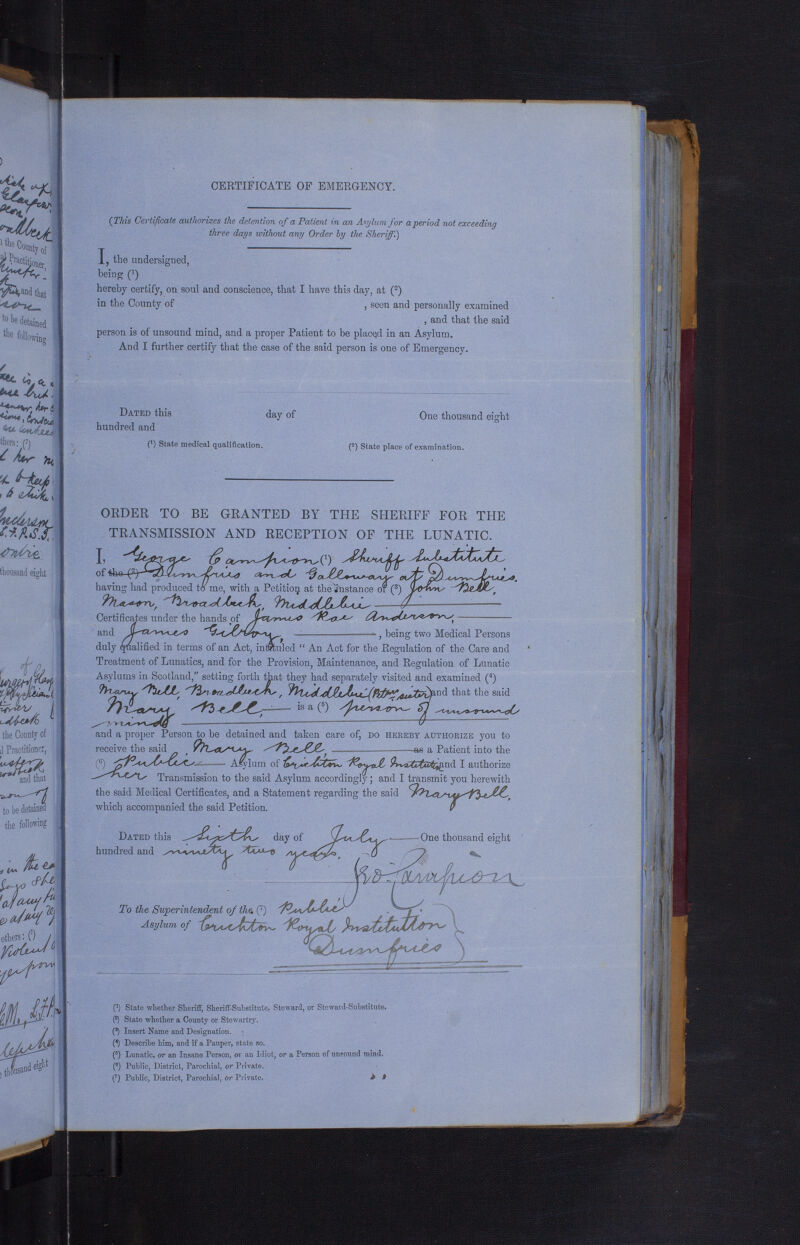 CERTIFICATE OF EMERGENCY.
(This Certificate authorizes the detention of a Patient in an Asylum for a period not exceeding
three days without any Order by the Sheriff.)
I, the undersigned,
being (1)
hereby certify, on soul and conscience, that I have this day, at (2)
in the County of , seen and personally examined
, and that the said
person is of unsound mind, and a proper Patient to be placed in an Asylum.
And I further certify that the case of the said person is one of Emergency.
DATED this day of One thousand eight
hundred and
(1) State medical qualification. (2) State place of examination.
ORDER TO BE GRANTED BY THE SHERIFF FOR THE
TRANSMISSION AND RECEPTION OF THE LUNATIC.
I, George Campion (1) Sheriff Substitute
of the (2) Dumfries and Galloway at Dumfries,
having had produced to me, with a Petition at the instance of (3) John Bell,
Mason, Broadlech, Middlebie
Certificates under the hands of James Rae Anderson,
and James Gilroy, , being two Medical Persons
duly qualified in terms of an Act, intituled "An Act for the Regulation of the Care and
Treatment of Lunatics, and for the Provision, Maintenance, and Regulation of Lunatic
Asylums in Scotland," setting forth that they had separately visited and examined (4)
Mary Bell, Broadlech, Middlebie sister) and that the said
Mary Bell, is a (5) person of unsound
mind
and a proper Person to be detained and taken care of, DO HEREBY AUTHORIZE you to
receive the said Mary Bell, as a Patient into the
(6) Public Asylum of Crichton Royal Institution and I authorize
her Transmission to the said Asylum accordingly; and I transmit you herewith
the said Medical Certificates, and a Statement regarding the said Mary Bell,
which accompanied the said Petition.
DATED this Sixth day of July One thousand eight
hundred and ninety two years.
Campion
To the Superintendent of the (7) Public
Asylum of Crichton Royal Institution
Dumfries
(1) State whether Sheriff, Sheriff-Substitute, Steward, or Steward-Substitute.
(2) State whether a County or Stewartry.
(3) Insert Name and Designation.
(4) Describe him, and if a Pauper, state so.
(5) Lunatic, or an Insane Person, or an Idiot, or a Person of unsound mind.
(6) Public, District, Parochial, or Private.
(7) Public, District, Parochial, or Private.
the County of
Practitioner,
and that
to be detained
the following
thousand eight
the County of
Practitioner,
and that
to be detained
the following
others: (7)
thousand eight